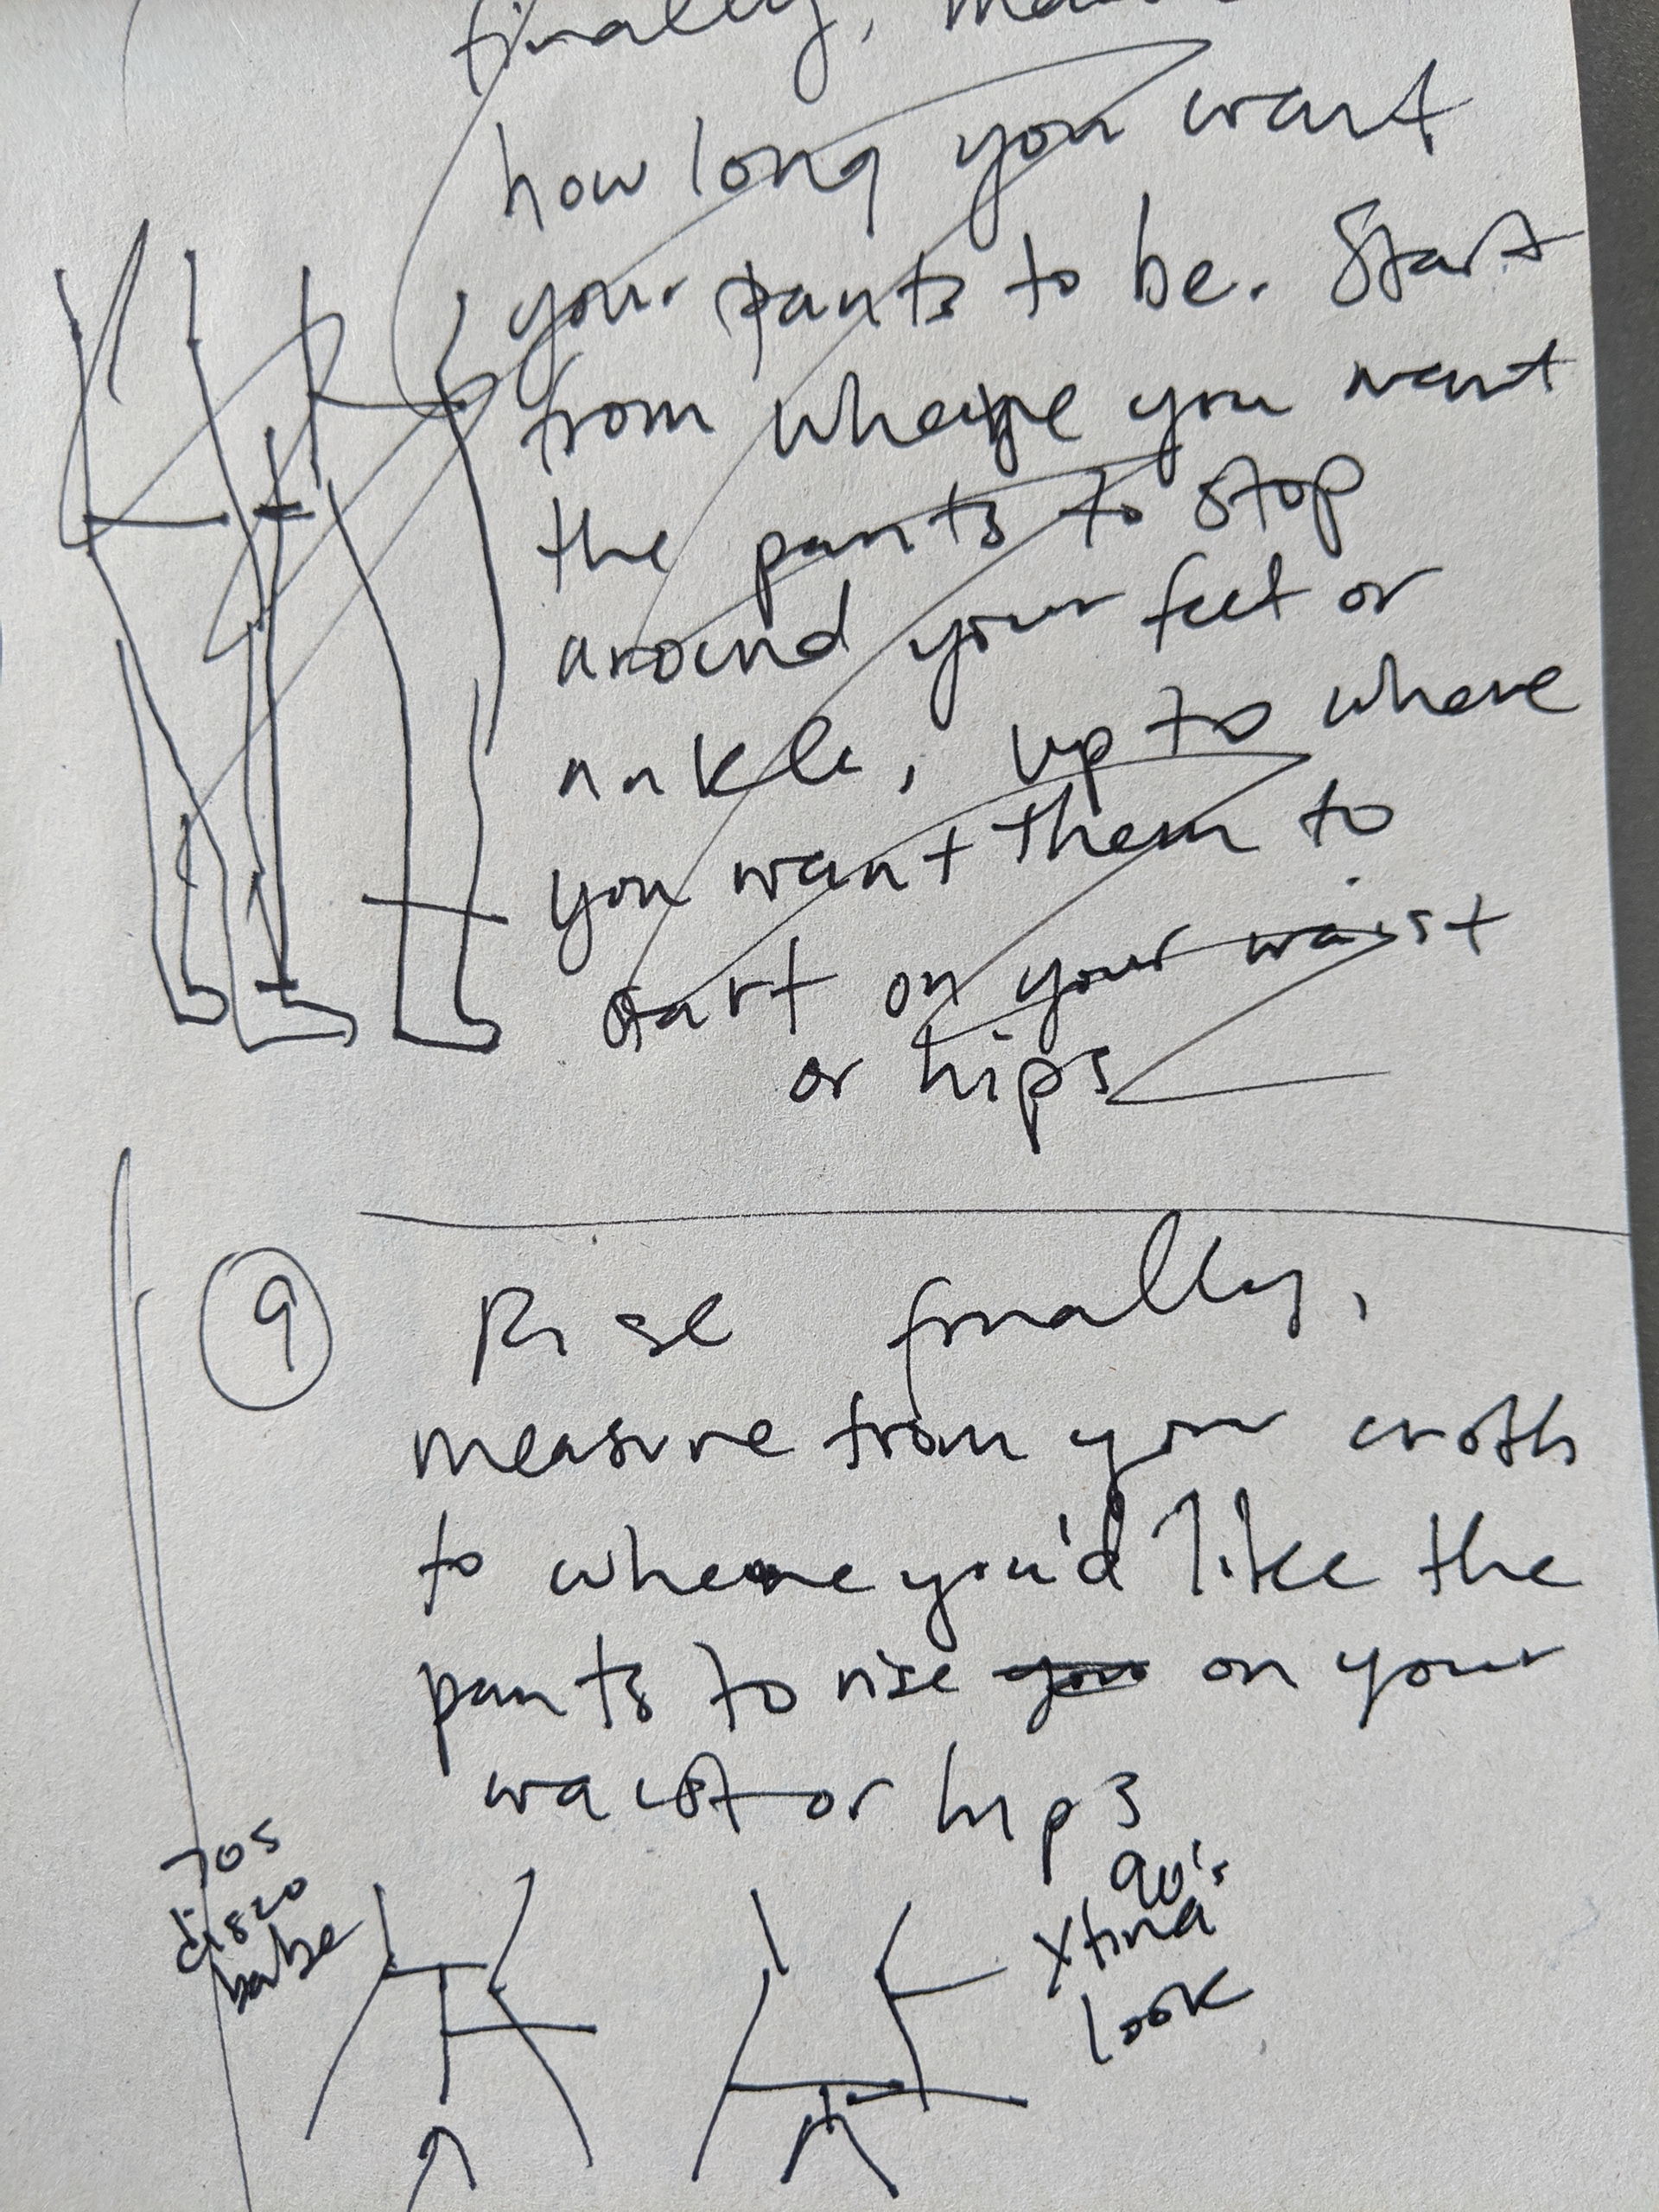 finally,
how long you want
your pants to be. Start
from where you want
the pants to stop
around your feet or
ankle, up to where
you want them to
start on your waist
or hips
9 Rise finally,
measure from your croth
to where you'd like the
pants to rise you on your
waist or hips
70s
disco
babe
90's
Xtina
look